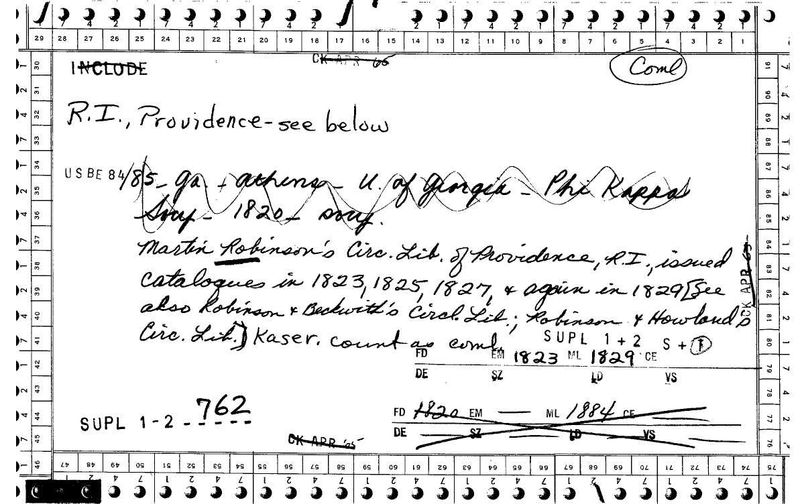 29 28 27 26 25 24 23 22 21 20 19 18 17 16 15 14 13 12 11 10 9 8 7 6 5 4 3 2 1
INCLUDE
CK APR '65
Coml
R.I., Providence - see below
USBE 84/85 - Ga. + Athens - U. of Georgia - Phi Kappa
Socy - 1820 - socy.
Martin Robinson's Circ. Lib. of Providence, R.I., issued
catalogues in 1823, 1825, 1827, & again in 1829 [See
also Robinson & Beckwith's Circl. Lib.; Robinson & Howland's
Circ. Lib.] Kaser. count as coml.
SUPL 1+2 S+1
FD EM 1823 ML 1829 CE
DE SZ LD VS
SUPL 1-2 ----- 762
FD 1820 EM — ML 1884 CE
DE SZ LD VS
CK APR '65
CK APR 65
47 48 49 50 51 52 53 54 55 56 57 58 59 60 61 62 63 64 65 66 67 68 69 70 71 72 73 74 75